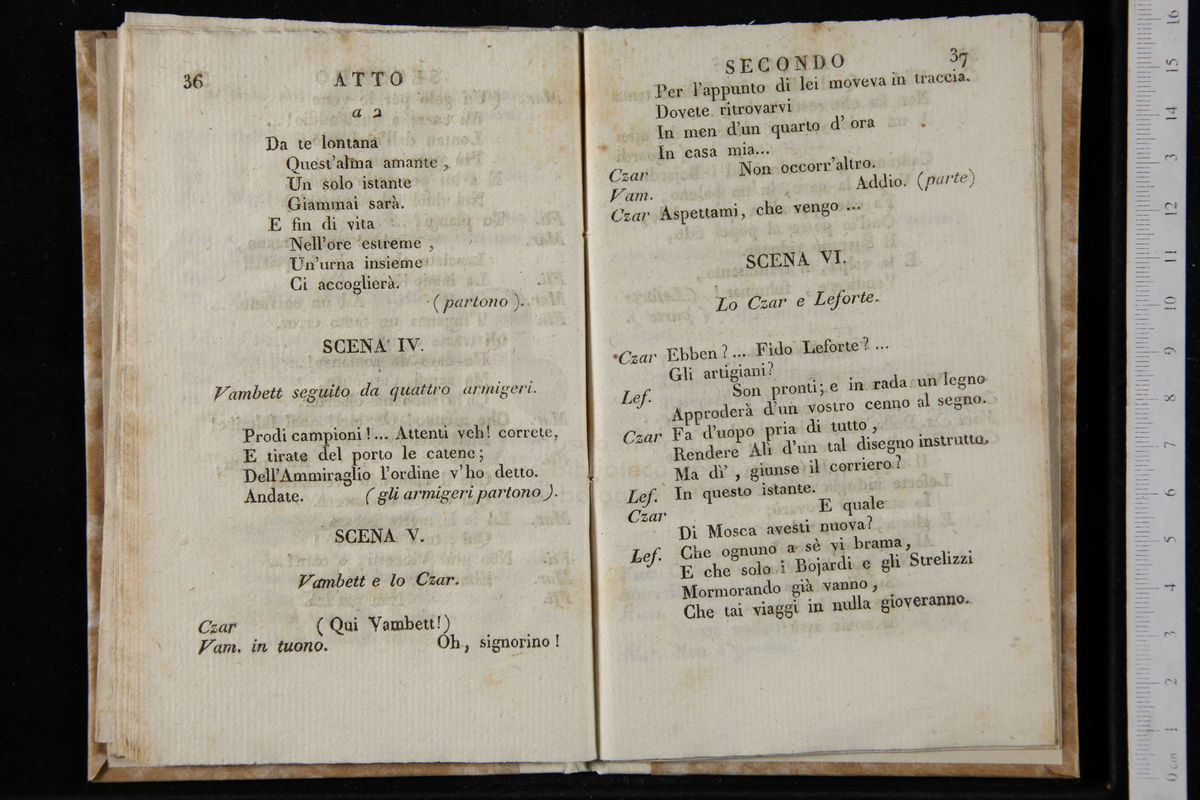 36
ATTO
a 2
Da te lontana
Quest'alma amante,
Un solo istante
Giammai sarà.
E fin di vita
Nell'ore estreme,
Un'urna insieme
Ci accoglierà.
(partono).
SCENA IV.
Vambett seguito da quattro armigeri.
Prodi campioni!... Attenti veh! correte,
E tirate del porto le catene;
Dell'Ammiraglio l'ordine v'ho detto.
Andate. (gli armigeri partono).
SCENA V.
Vambett e lo Czar.
Czar (Qui Vambett!)
Vam. in tuono. Oh, signorino!
SECONDO 37
Per l'appunto di lei moveva in traccia.
Dovete ritrovarvi
In men d'un quarto d'ora
In casa mia...
Czar Non occorr'altro.
Vam. Addio. (parte)
Czar Aspettami, che vengo...
SCENA VI.
Lo Czar e Leforte.
Czar Ebben?... Fido Leforte?...
Gli artigiani?
Lef. Son pronti; e in rada un legno
Approderà d'un vostro cenno al segno.
Czar Fa d'uopo pria di tutto,
Rendere Alì d'un tal disegno instrutto.
Ma dì', giunse il corriero?
Lef. In questo istante.
Czar E quale
Di Mosca avesti nuova?
Lef. Che ognuno a sè vi brama,
E che solo i Bojardi e gli Strelizzi
Mormorando già vanno,
Che tai viaggi in nulla gioveranno.
16
15
14
13
12
11
10
9
8
7
6
5
4
3
2
1
0 cm